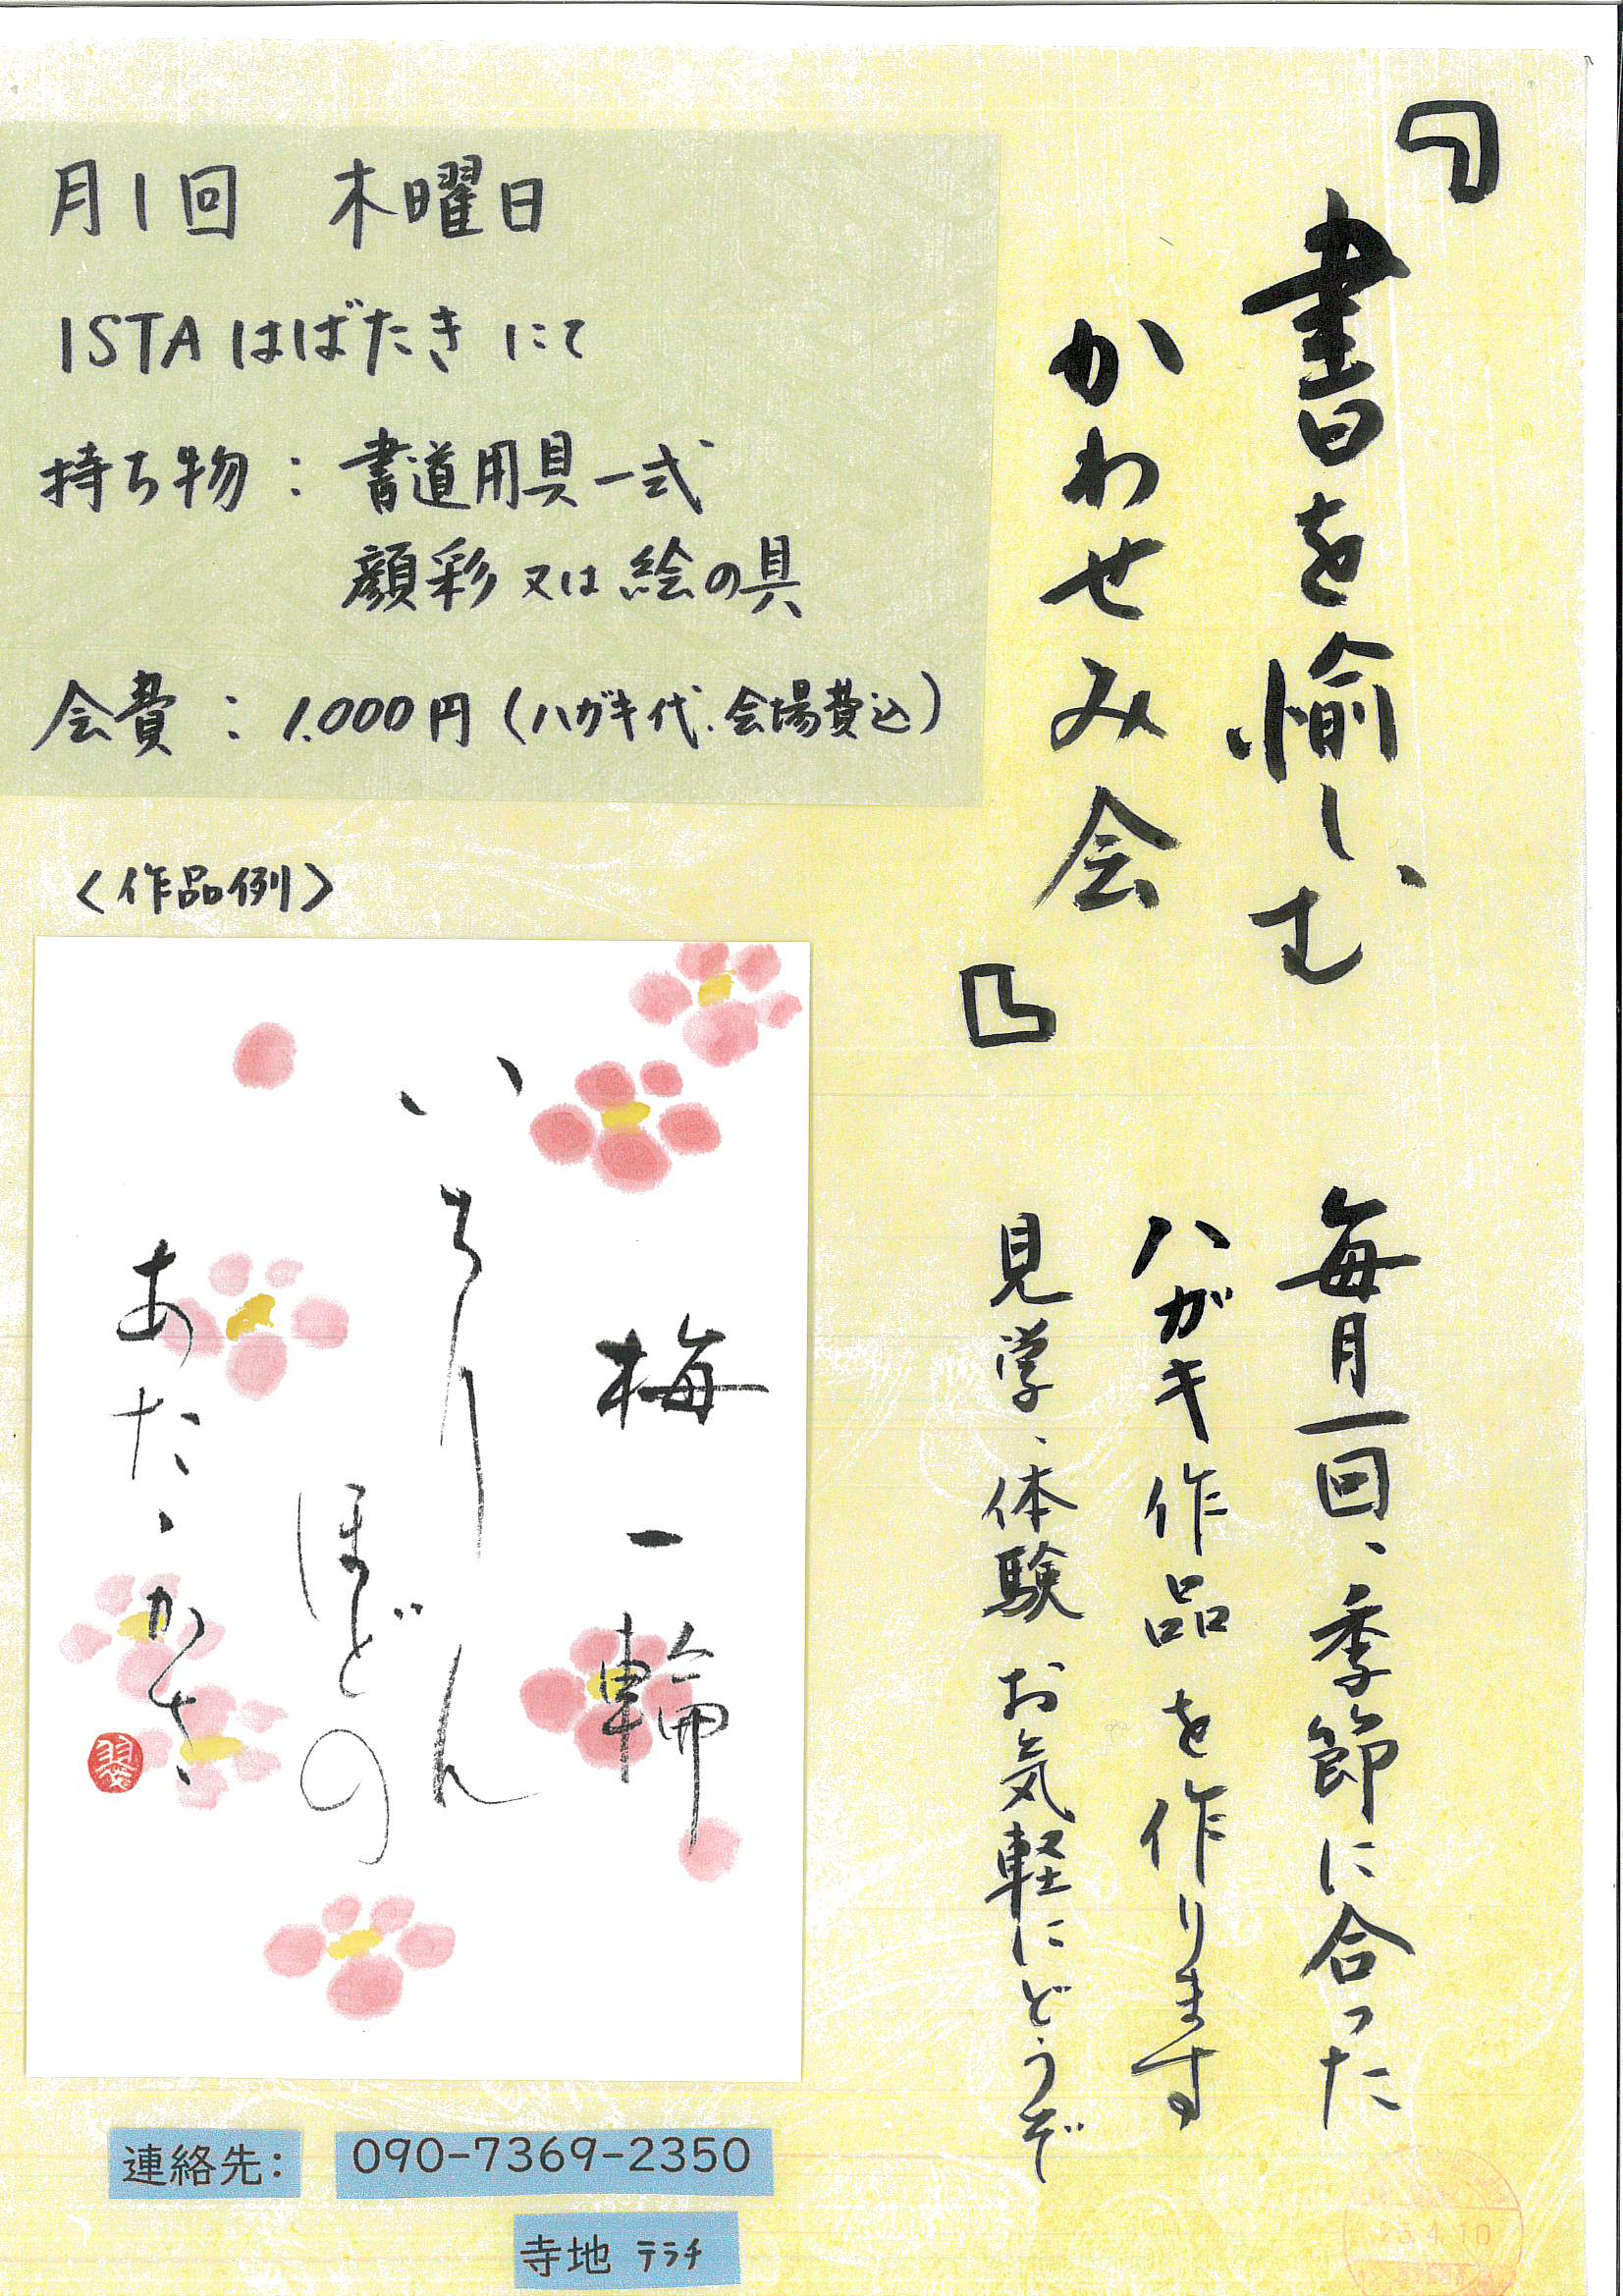 『書を愉しむ
かわせみ会』
毎月一回、季節に合った
ハガキ作品を作ります
見学、体験お気軽にどうぞ
月1回 木曜日
ISTAはばたきにて
持ち物：書道用具一式
顔彩又は絵の具
会費：1.000円（ハガキ代、会場費込）
〈作品例〉
梅一輪
いちりん
ほどの
あたゝかさ
翠
連絡先：
090-7369-2350
寺地 テラチ
23.4.10